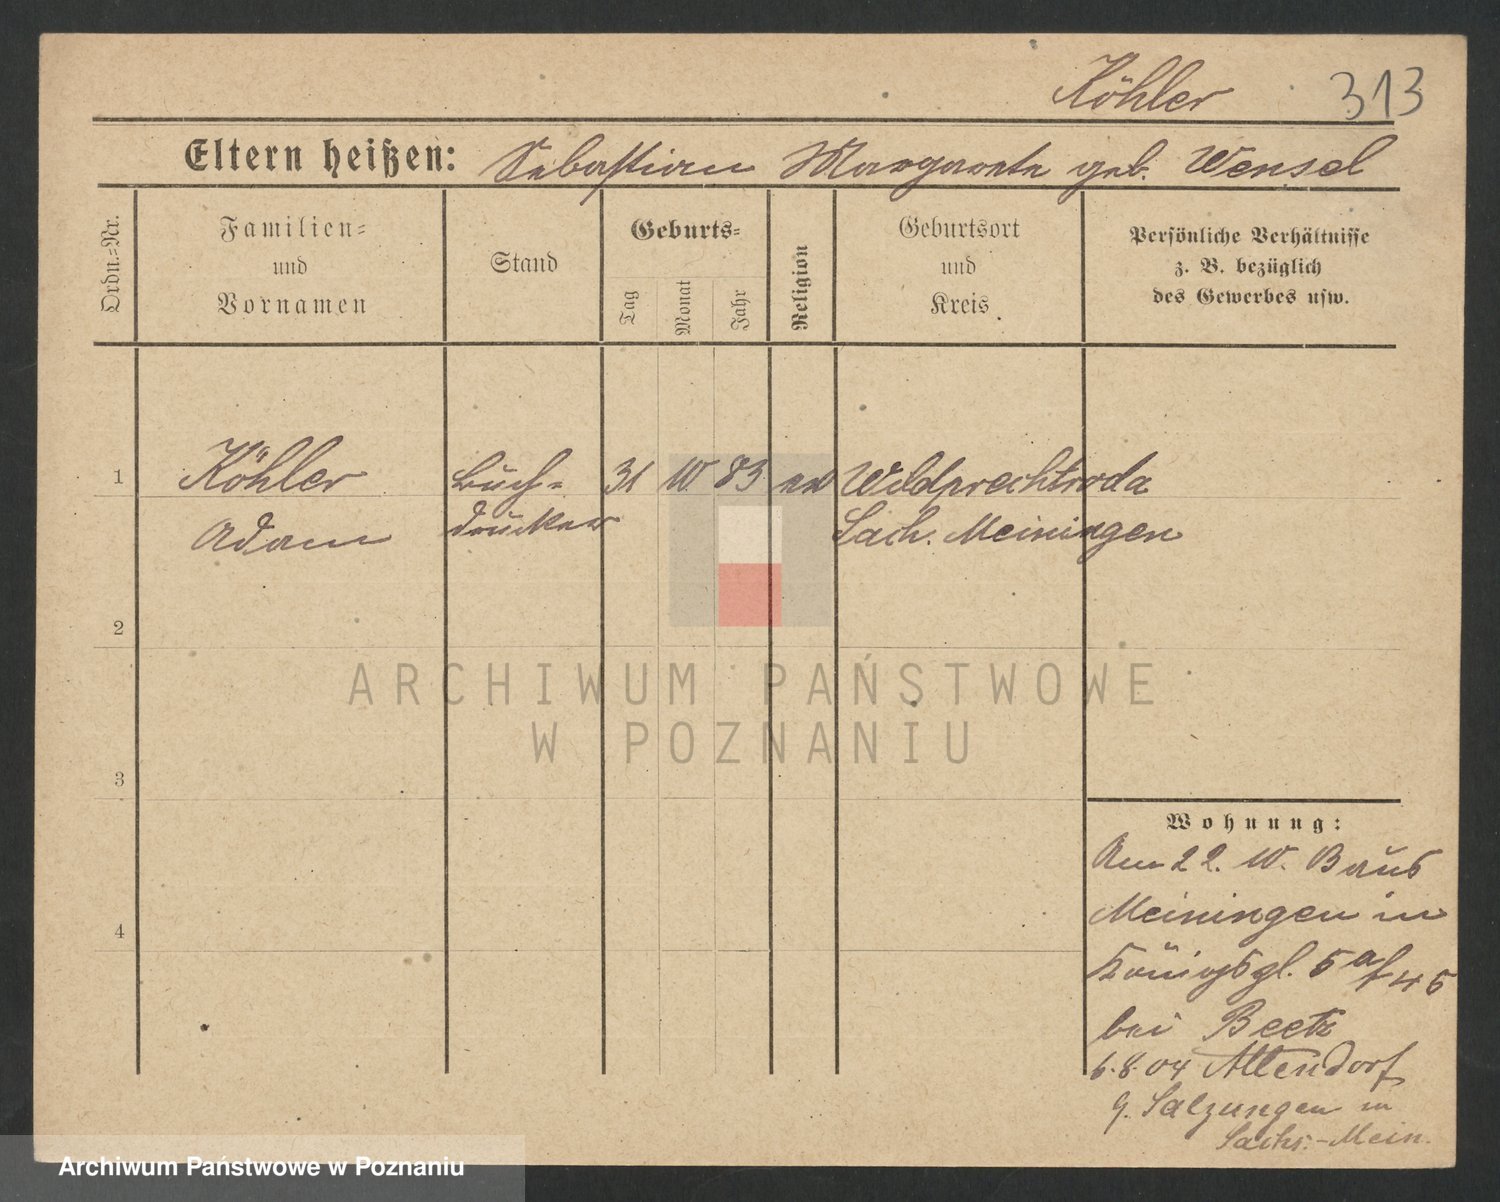 Köhler 313
Eltern heißen: Sebastian Margarete geb. Wensel
Ordn.-Nr.
Familien-
und
Vornamen
Stand
Geburts-
Tag
Monat
Jahr
Religion
Geburtsort
und
Kreis
Persönliche Verhältnisse
z. B. bezüglich
des Gewerbes usw.
1 Köhler Buch- 31 10 83 ev Wildprechtroda
Adam drucker Sach. Meiningen
2
3
4
Wohnung:
Am 22. 10. aus
Meiningen in
Königspl. 5
bei Beetz
6.8.04 Allendorf
b. Salzungen in
Sachs.-Mein.
ARCHIWUM PAŃSTWOWE
W POZNANIU
Archiwum Państwowe w Poznaniu